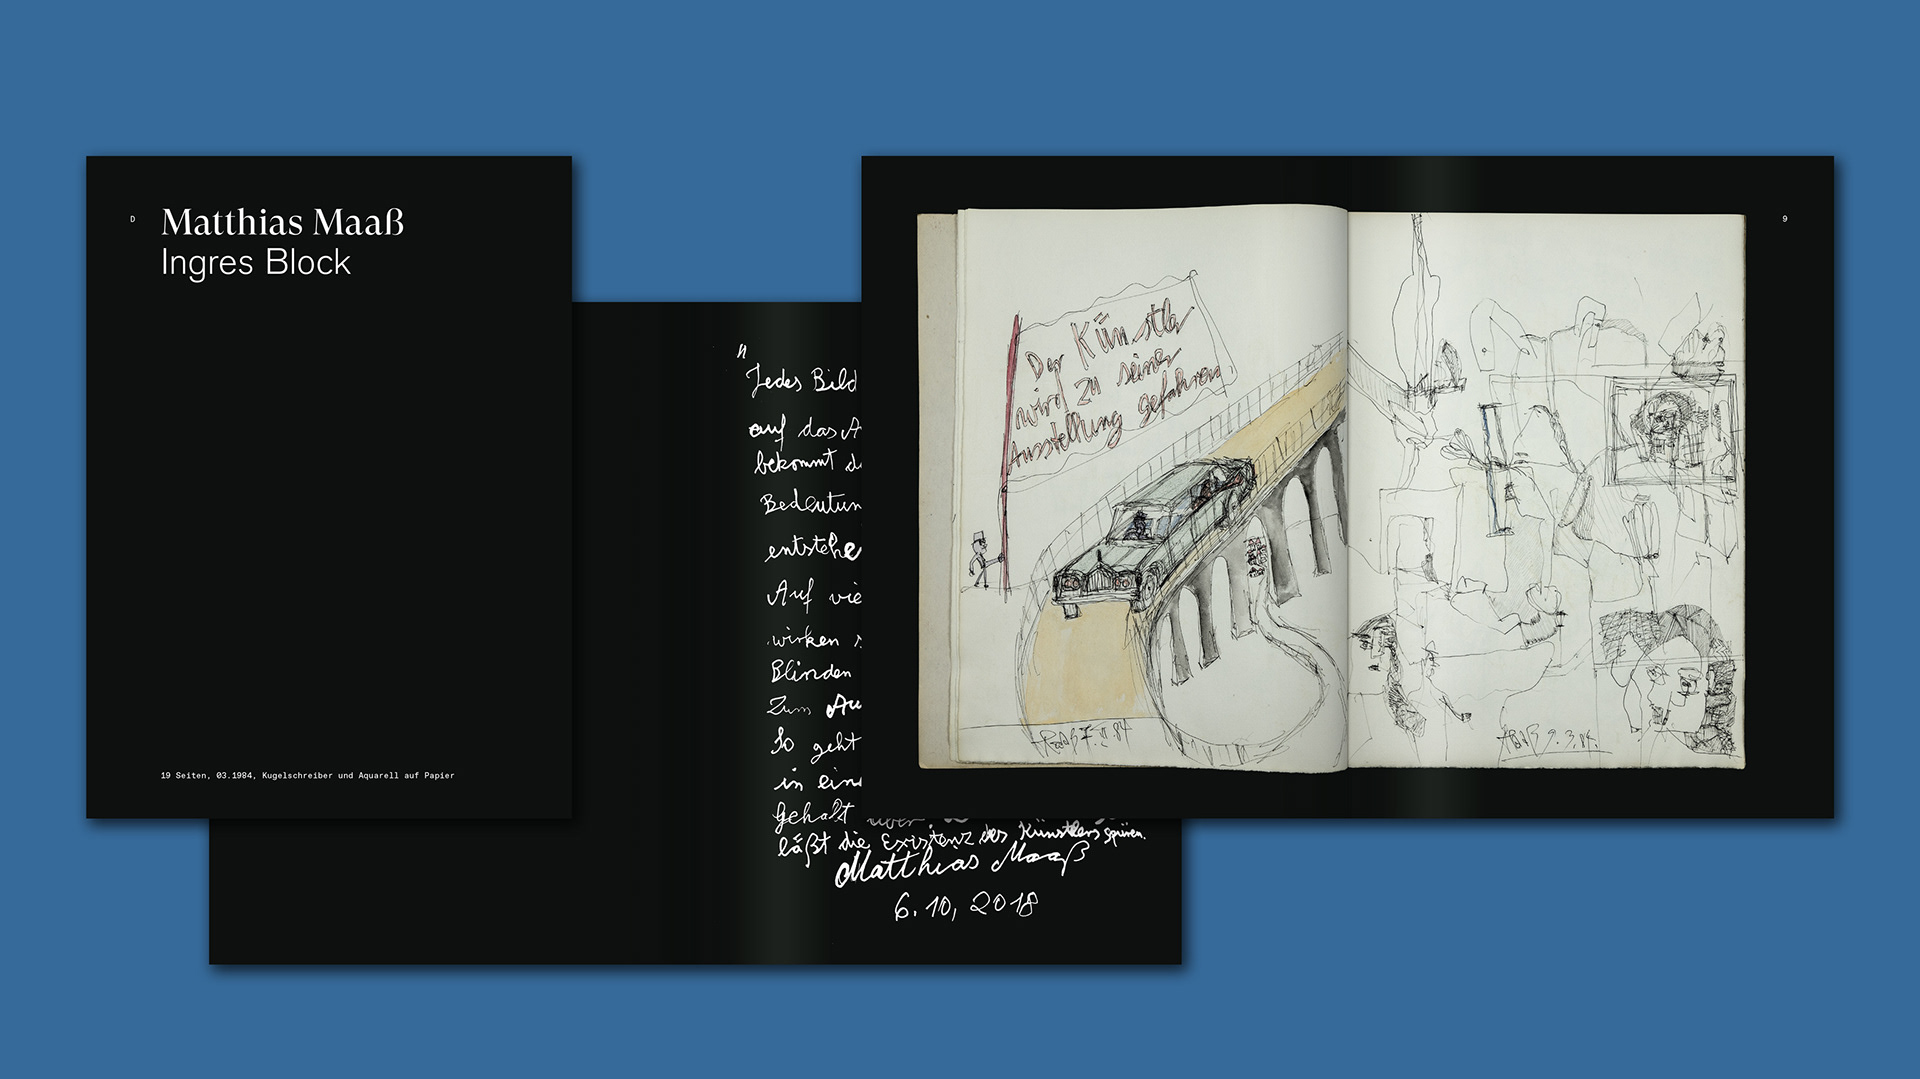 D
Matthias Maaß
Ingres Block
19 Seiten, 03.1984, Kugelschreiber und Aquarell auf Papier
"
Jedes Bild
auf das A
bekommt d
Bedeutun
entstehe
Auf vie
wirken
Blinden
Zum Au
So geht
in eine
Gehalt über.
läßt die Existenz des Künstlers spüren.
Matthias Maaß
6.10, 2018
9
Der Künstler
wird zu seiner
Ausstellung gefahren